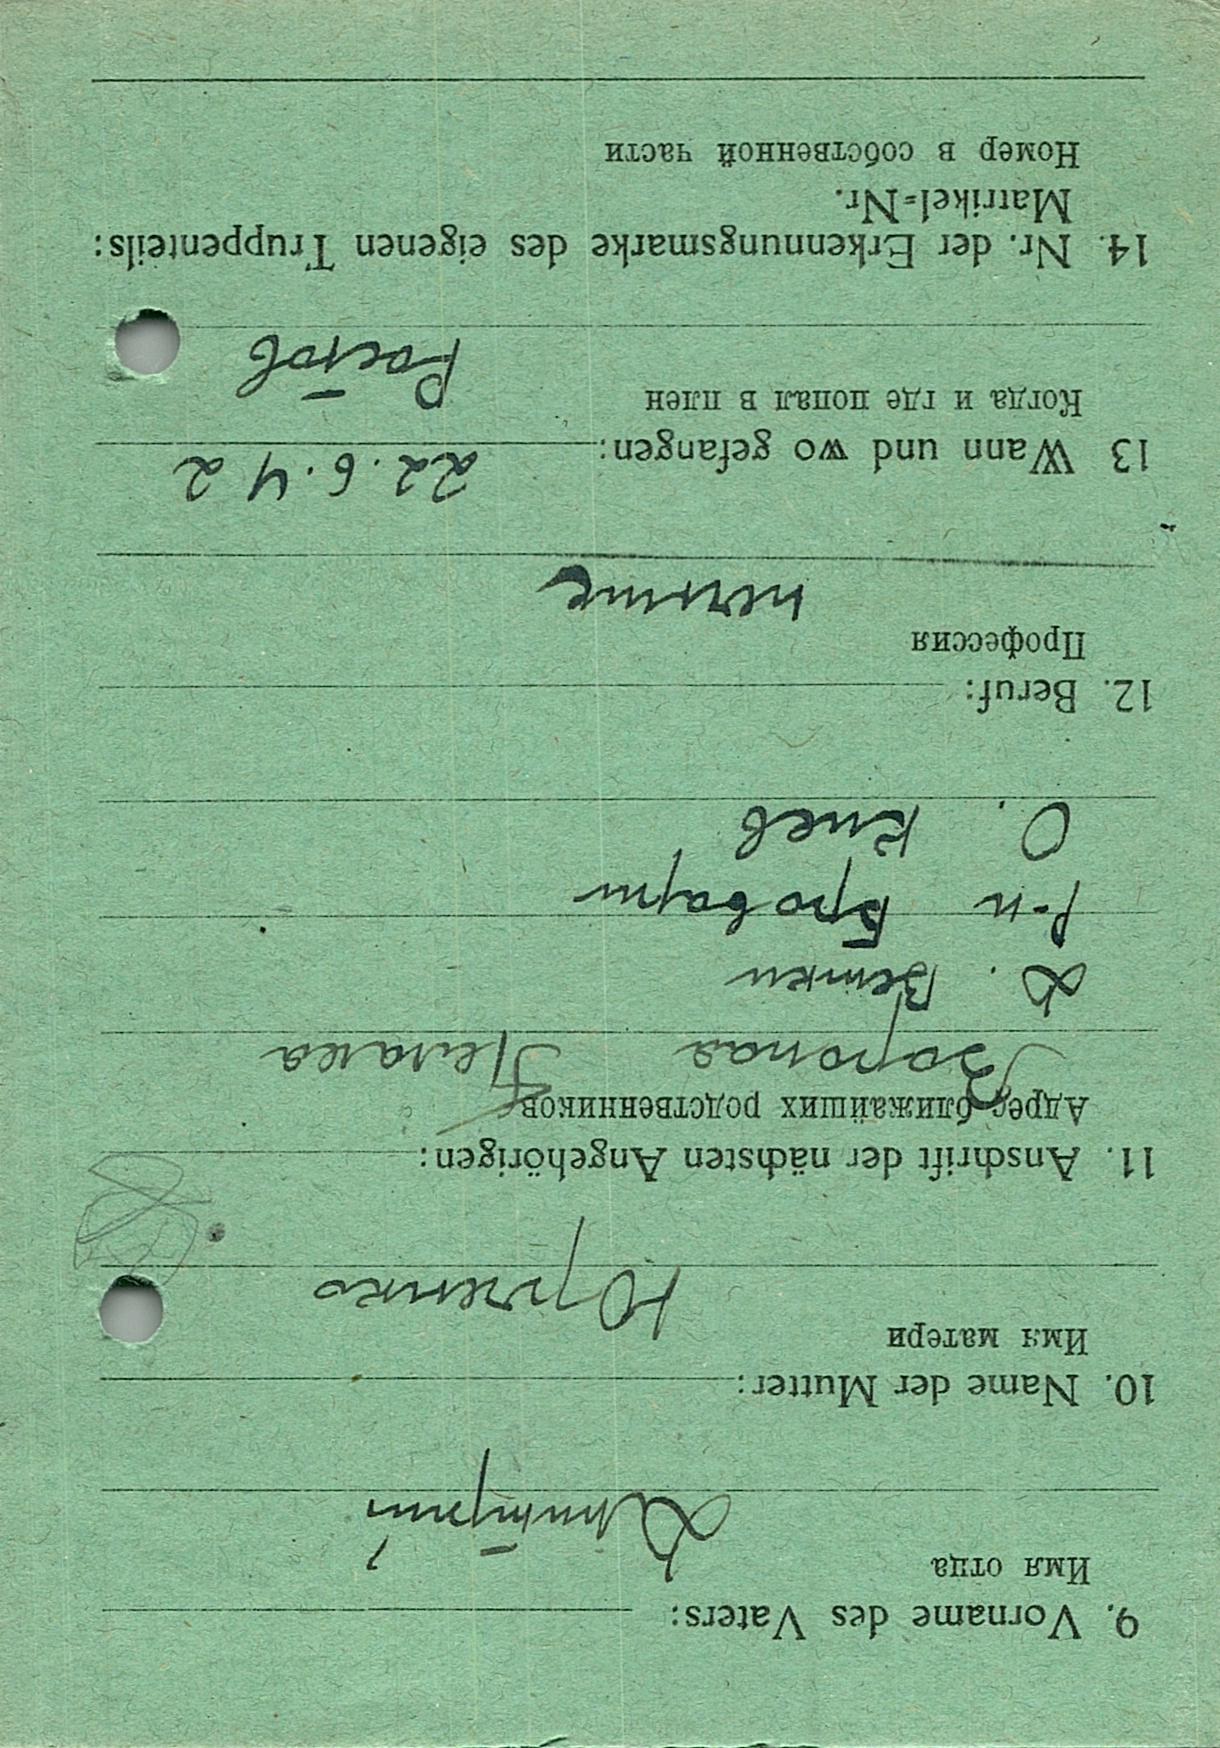 9. Vorname des Vaters:
Имя отца
Дмитрий
10. Name der Mutter:
Имя матери
Юрченко
11. Anschrift der nächsten Angehörigen:
Адрес ближайших родственников
Вороная Пелагея
Р-н Бровари
О. Киев
12. Beruf:
Профессия
13 Wann und wo gefangen:
22.6.42
Когда и где попал в плен
Ростов
14. Nr. der Erkennungsmarke des eigenen Truppenteils:
Matrikel=Nr.
Номер в собственной части